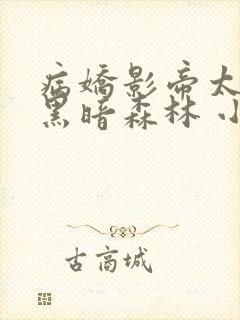 病嬌影帝太
黑暗森林 小
古高城